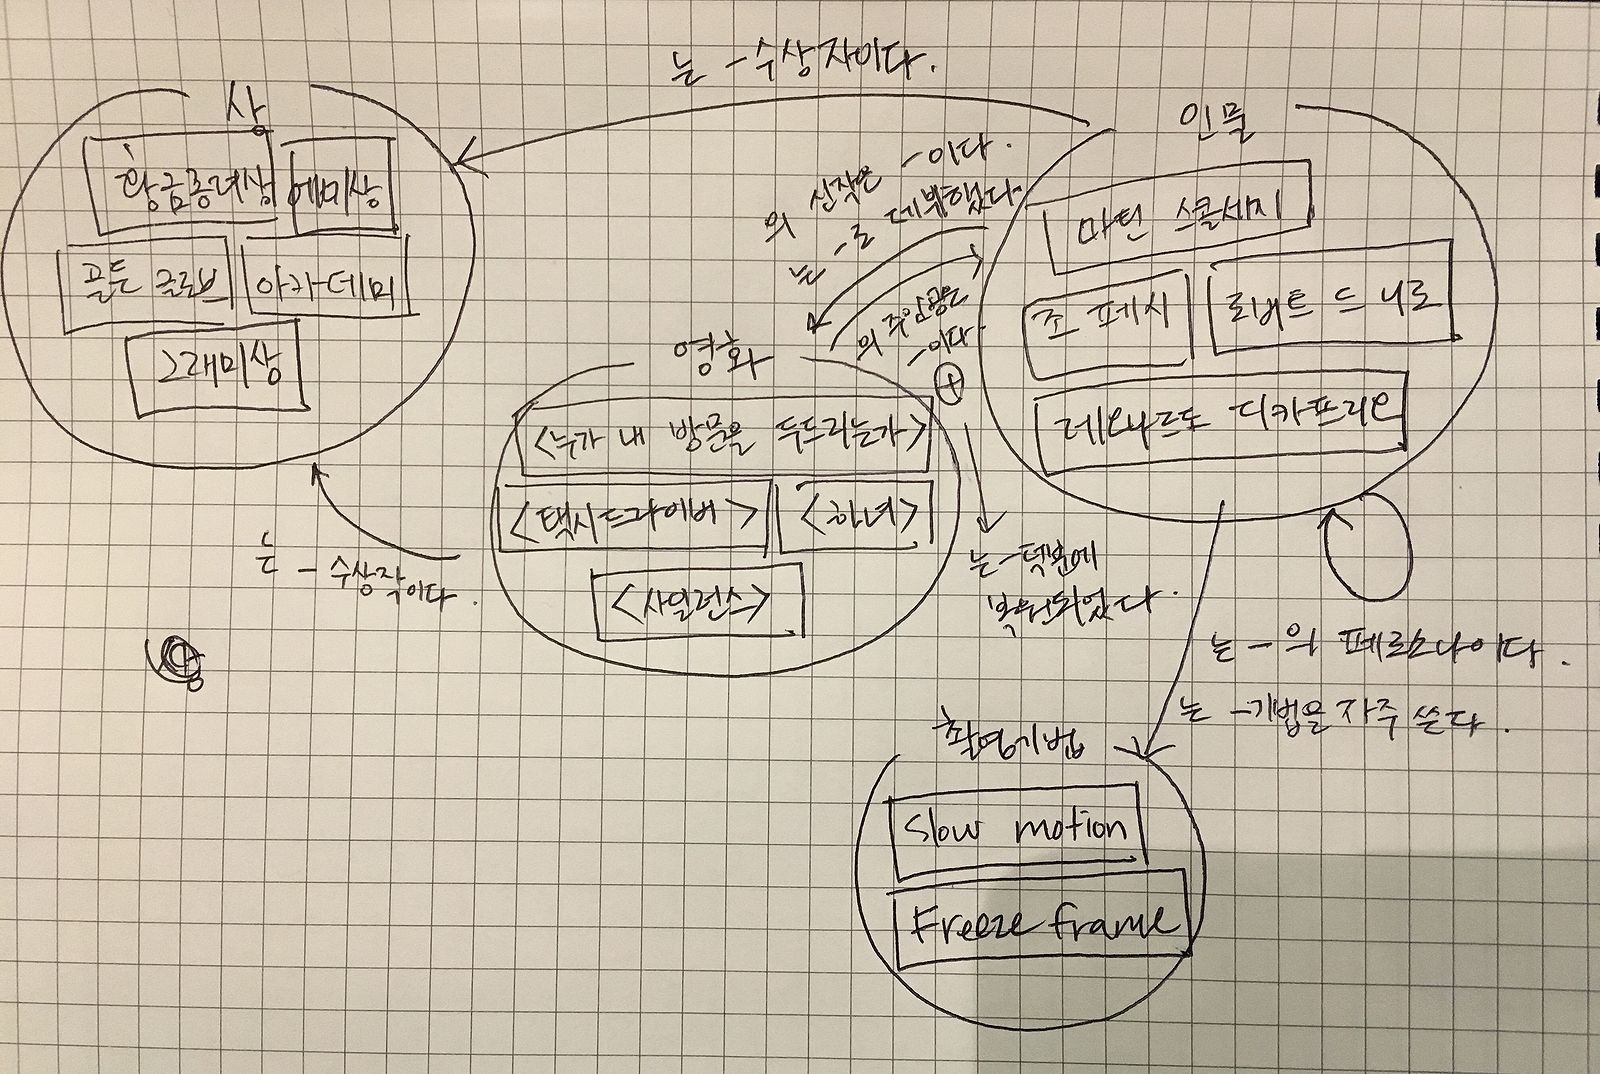 는 -수상자이다.
상
황금종려상
에미상
골든 글로브
아카데미
그래미상
인물
마틴 스콜세지
조 페시
로버트 드 니로
레오나르도 디카프리오
의 신작은 -이다.
는 -로 데뷔했다.
의 주인공은
-이다.
영화
<누가 내 방문을 두드리는가>
<택시드라이버>
<하녀>
<사일런스>
는 - 수상작이다.
는 -덕분에
복원되었다.
는 -의 페르소나이다.
는 -기법을 자주 쓴다.
촬영기법
Slow motion
Freeze frame